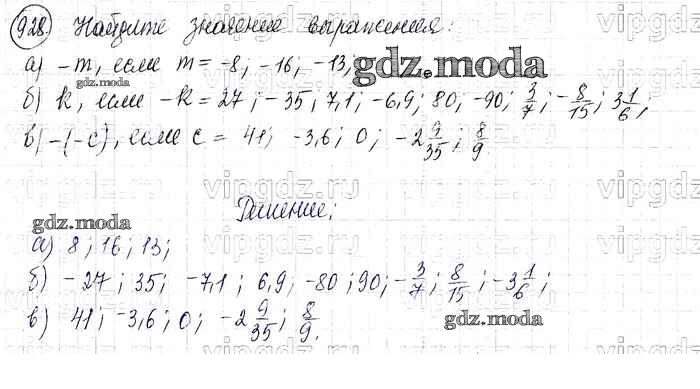 928. Найдите значение выражения:
а) -m, если m = -8; -16; -13;
gdz.moda
gdz.moda
б) k, если -k = 27; -35; 7,1; -6,9; 80; -90; 3/7; -8/15; 3 1/6;
в) -(-c), если c = 41; -3,6; 0; -2 9/35; 8/9.
vipgdz.ru
Решение:
gdz.moda
а) 8; 16; 13;
б) -27; 35; -7,1; 6,9; -80; 90; -3/7; 8/15; -3 1/6;
в) 41; -3,6; 0; -2 9/35; 8/9.
gdz.moda